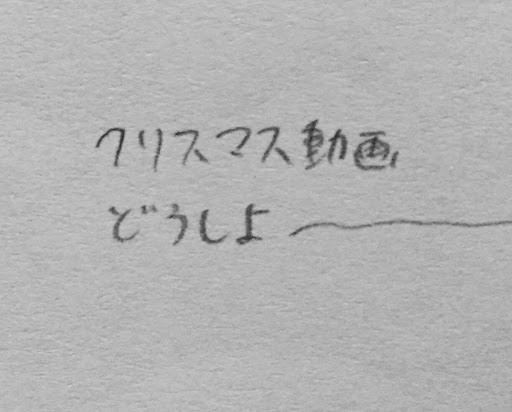 クリスマス動画、
どうしよ〜